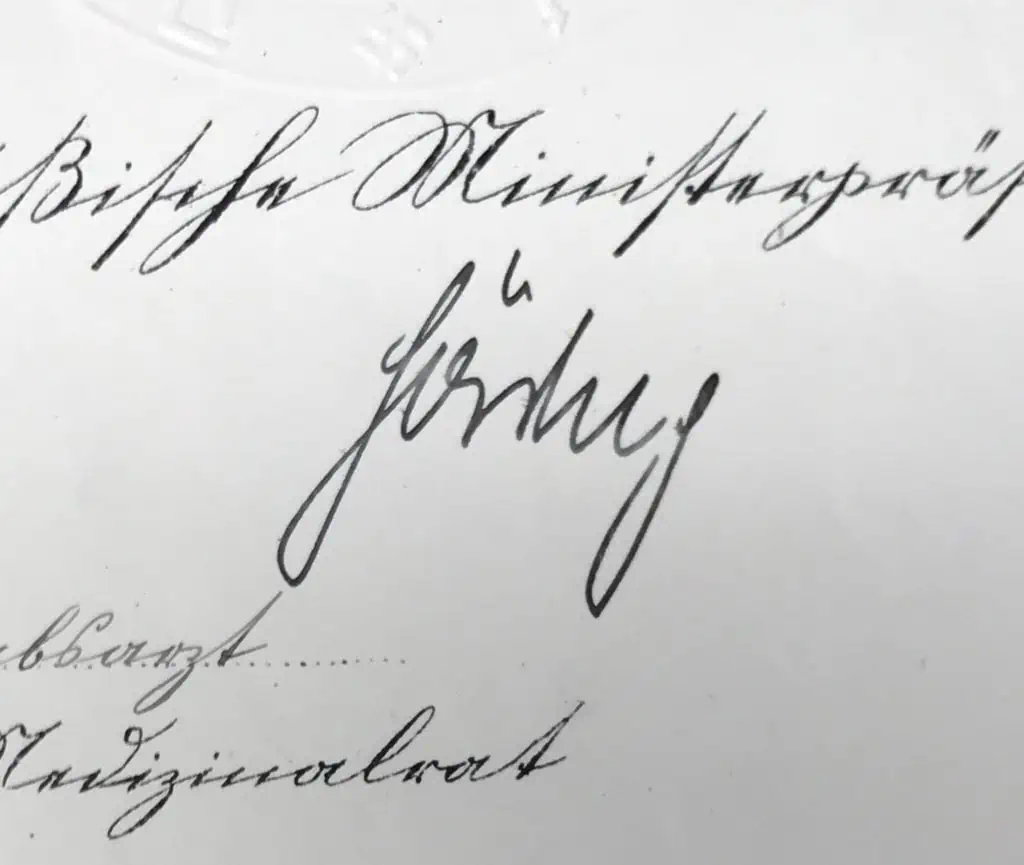 ßische Ministerpräs
Göring
absarzt
Medizinalrat